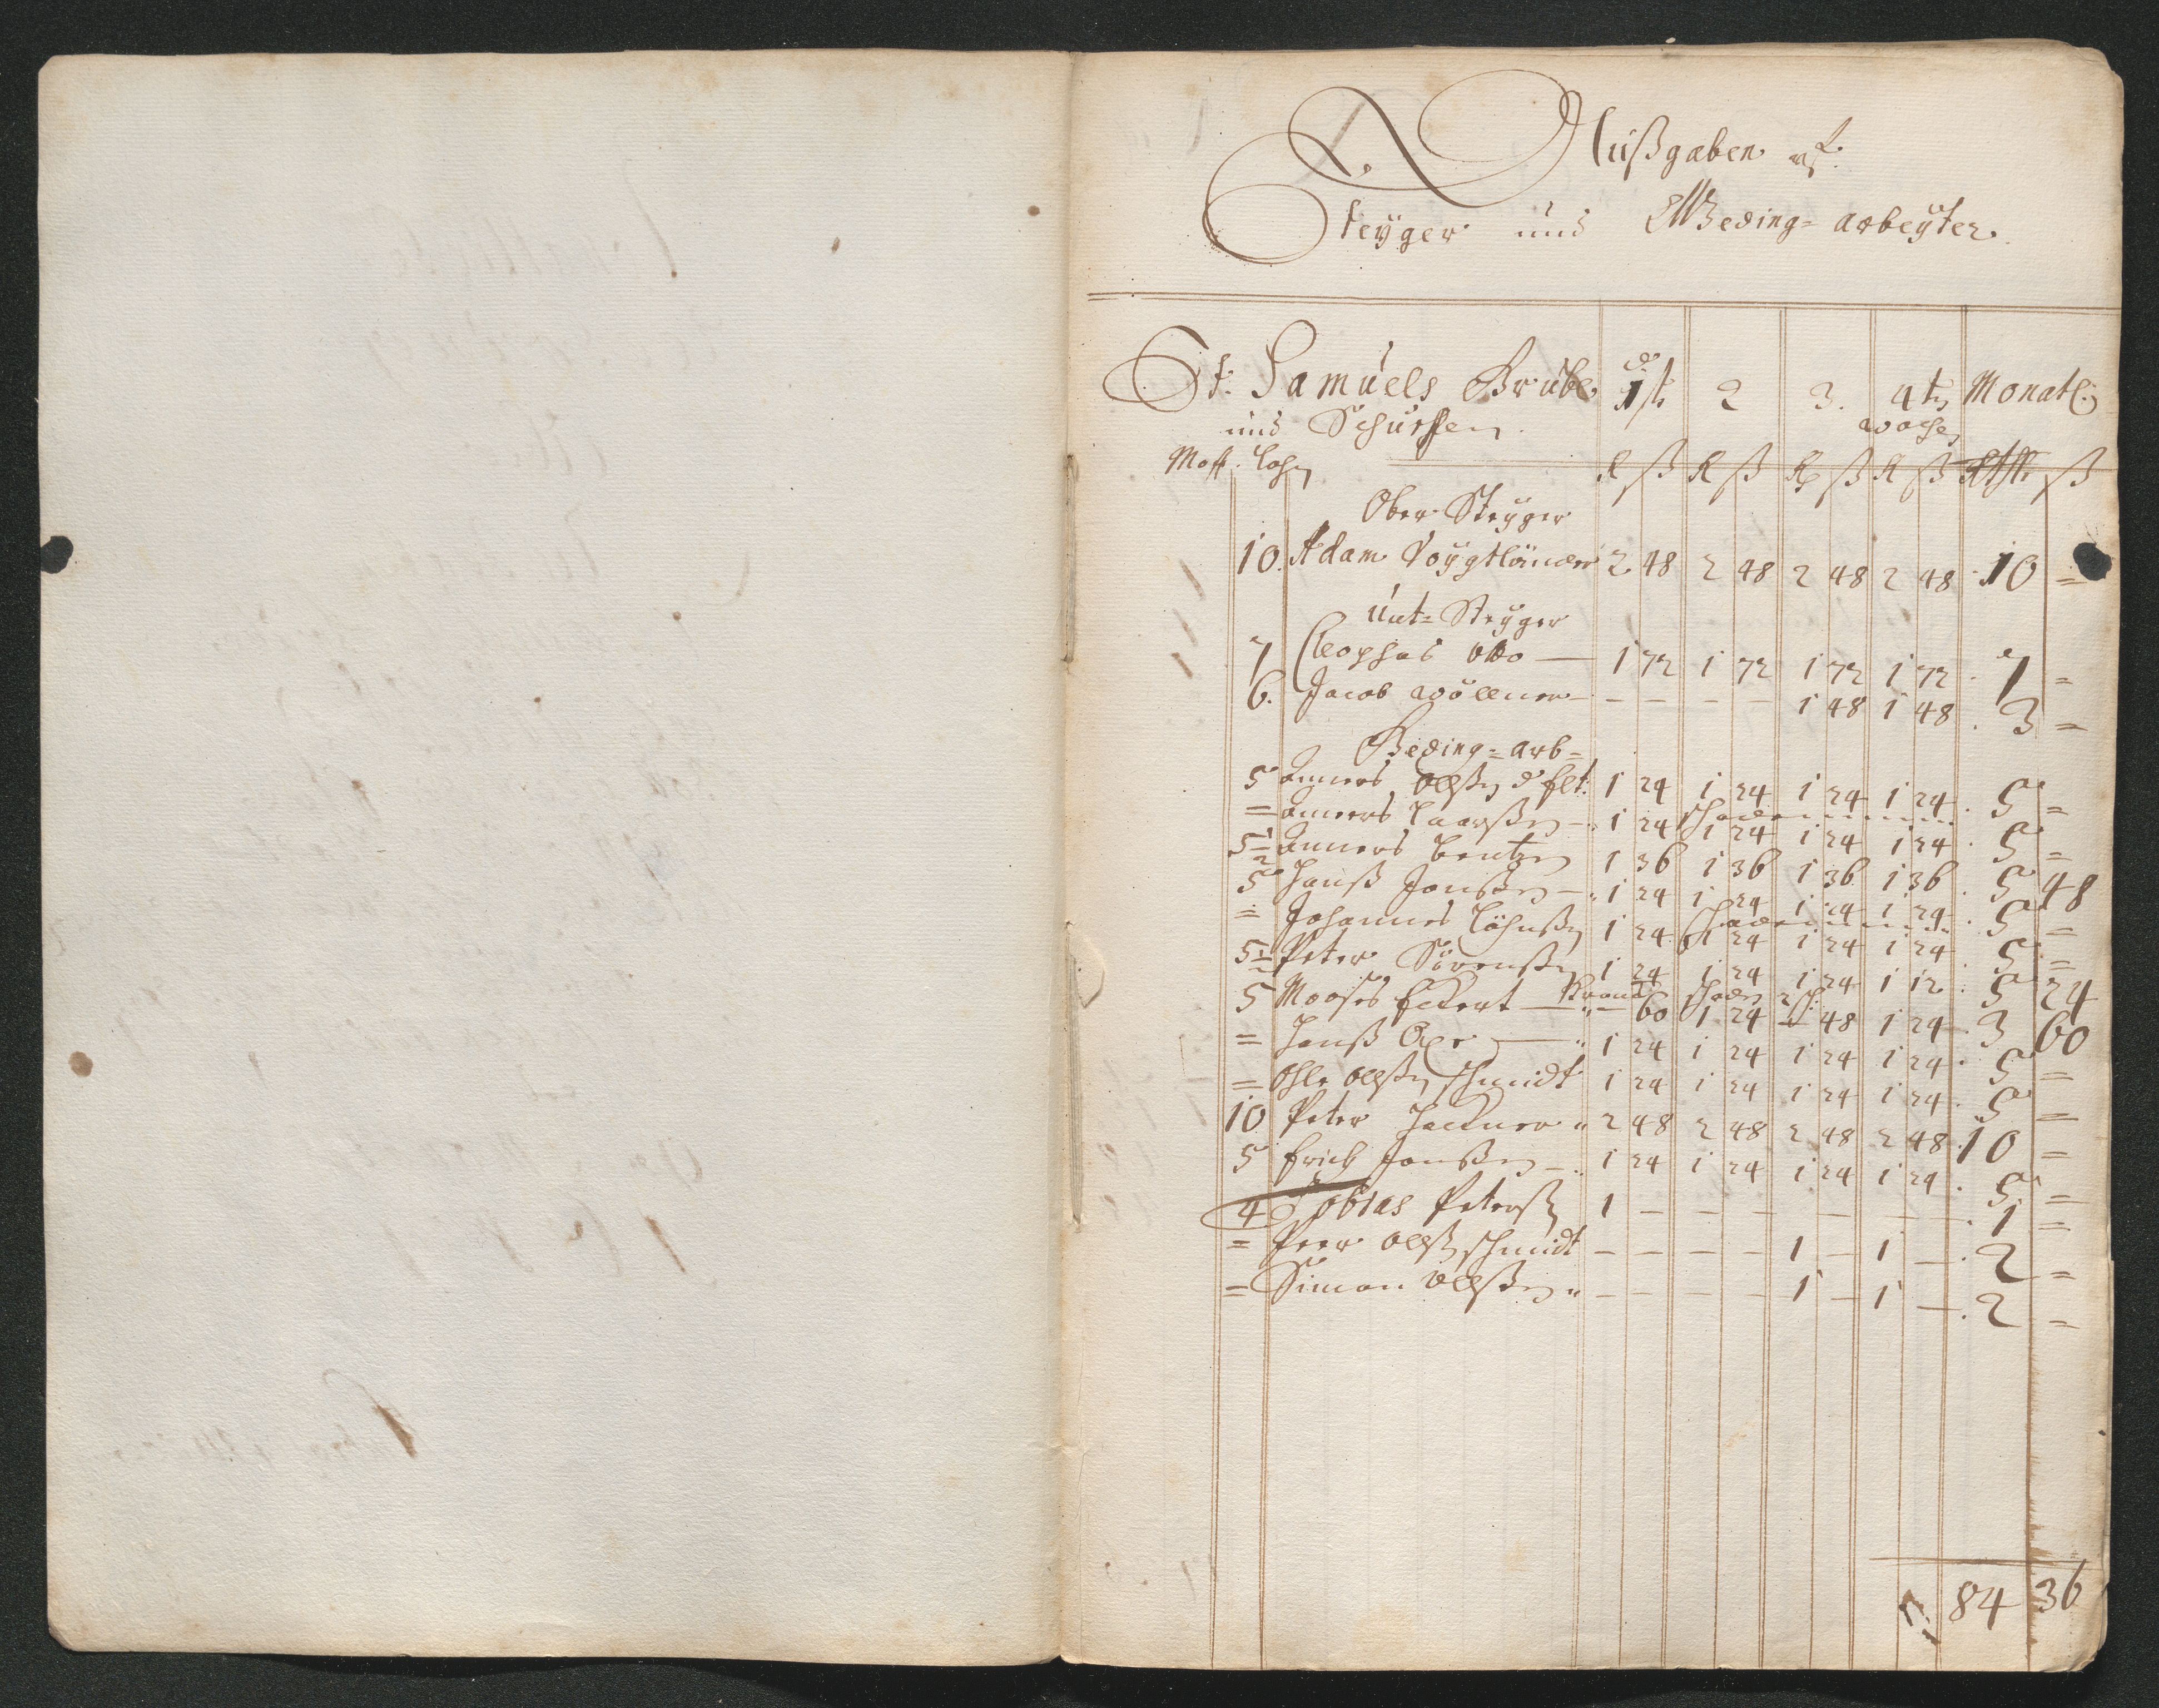 Außgaben uf
Steyger und Beding-arbeyter
St. Samuels Grube 1st 2 3. 4te Monatl:
und Schürffen wochen
Mott. Lohn R ß R ß R ß R ß Rthlr ß
Ober Steyger
10. Adam Voygtländer 2 48 2 48 2 48 2 48 10 =
Unt= Steyger
7 Cleophas Otto — 1 72 1 72 1 72 1 72 7 =
6. Jacob Wöllner — — — — 1 48 1 48 3 =
Beding=arb=
5 Anners Ollßen d Elt: 1 24 1 24 1 24 1 24 5 =
= Anners Laarßen 1 24 1 24 1 24 1 24 5 =
5½ Anners Bentzen 1 36 1 36 1 36 1 36 5 48
5 Hanß Jonßen 1 24 1 24 1 24 1 24 5 =
= Johannes Löhnßen 1 24 1 24 1 24 1 24 5 =
5½ Peter Sörenßen 1 24 1 24 1 24 1 12 5 24
5 Mooses Eckert — Kranck — 60 1 24 — 48 1 24 3 60
= Hanß 1 24 1 24 1 24 1 24 5 =
= Ohle Ollßen Schmidt 1 24 1 24 1 24 1 24 5 =
10 Peter Hackner 2 48 2 48 2 48 2 48 10 =
5 Erich Jonßen 1 24 1 24 1 24 1 24 5 =
4 Tobias Peterß 1 — — — — — 1 =
= Peer Ollß Schmidt — — — — 1 — 1 — 2 =
= Simon Ollßen — — — — 1 — 1 — 2 =
84 36